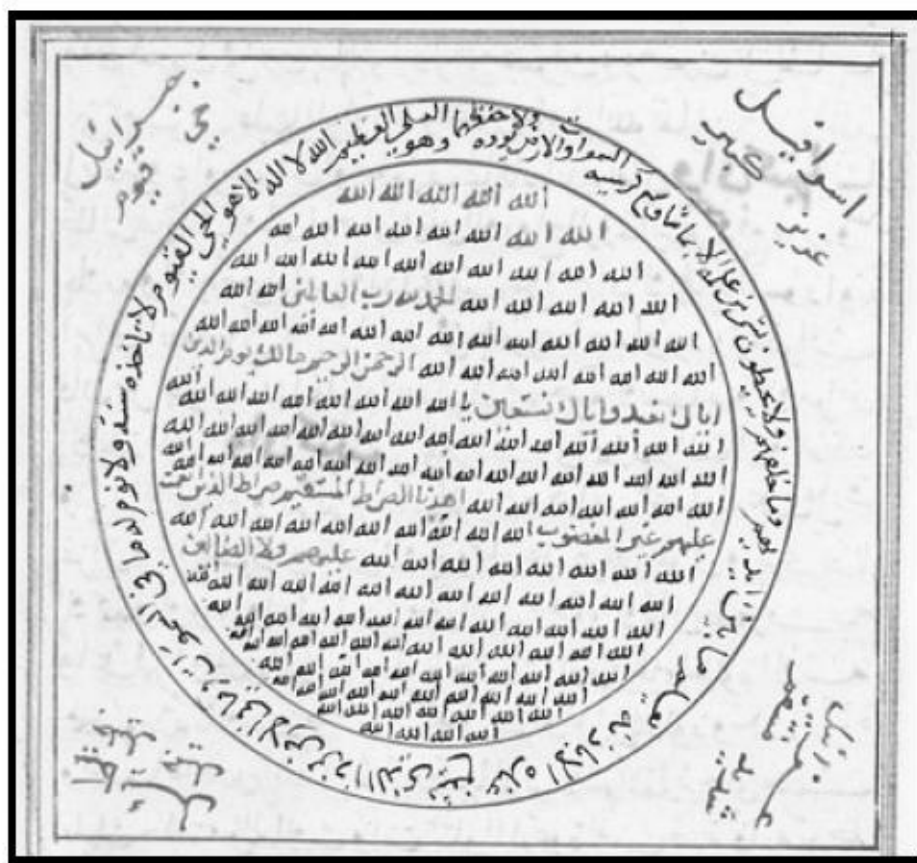 اسرافيل
كبير
عزيز
جبرائيل
حي
قيوم
الله لا اله الا هو الحي القيوم لا تأخذه سنة ولا نوم له ما في السموات وما في الارض من ذا الذي يشفع عنده الا باذنه يعلم ما بين ايديهم وما خلفهم ولا يحيطون بشئ من علمه الا بما شاء وسع كرسيه السموات والارض ولا يوده حفظهما وهو العلي العظيم
الله الله الله الله الله
الله الله الله الله الله الله الله الله
الله الله الله الله الله الله الله الله الله الله
الله الله الله الله الله الحمد لله رب العالمين الله الله
الله الله الله الله الله الله الله الله الله الله الله الله
الله الله الله الله الله الله الله الرحمن الرحيم مالك يوم الدين
اياك نعبد واياك نستعين يا الله الله الله الله الله الله الله الله الله
الله الله الله الله الله الله الله الله الله الله الله الله الله الله
الله الله الله الله الله الله الله الله الله الله الله الله الله الله الله
الله الله الله الله الله الله الله اهدنا الصراط المستقيم صراط الذين انعمت
عليهم غير المغضوب الله الله الله الله الله الله الله الله الله الله
الله الله الله الله الله الله الله الله عليهم ولا الضالين
الله الله الله الله الله الله الله الله الله الله الله الله الله
الله الله الله الله الله الله الله الله الله الله الله الله
الله الله الله الله الله الله الله الله الله الله الله الله
الله الله الله الله الله الله الله الله الله الله الله
الله الله الله الله الله الله الله الله الله
الله الله الله الله الله الله الله
الله الله الله الله الله
عزرائيل
شديد منتقم